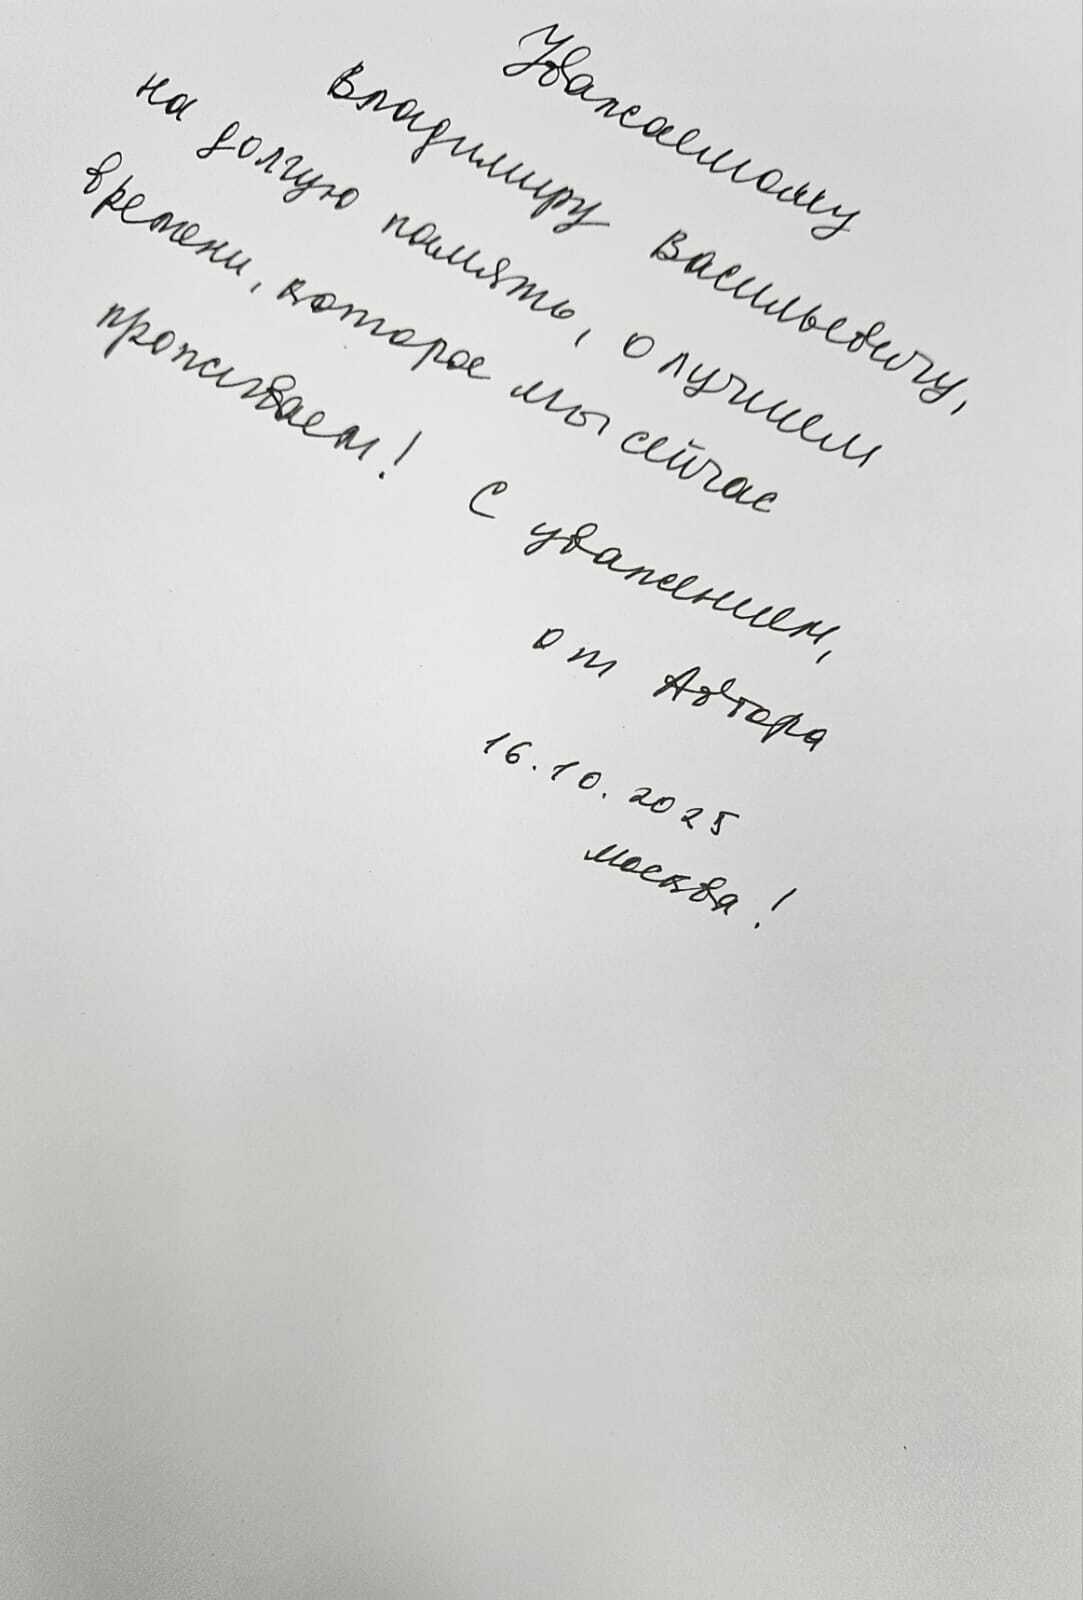 Уважаемому
Владимиру Васильевичу,
на долгую память, о лучшем
времени, которое мы сейчас
проживаем!
С уважением,
от Автора
16.10.2025
Москва!